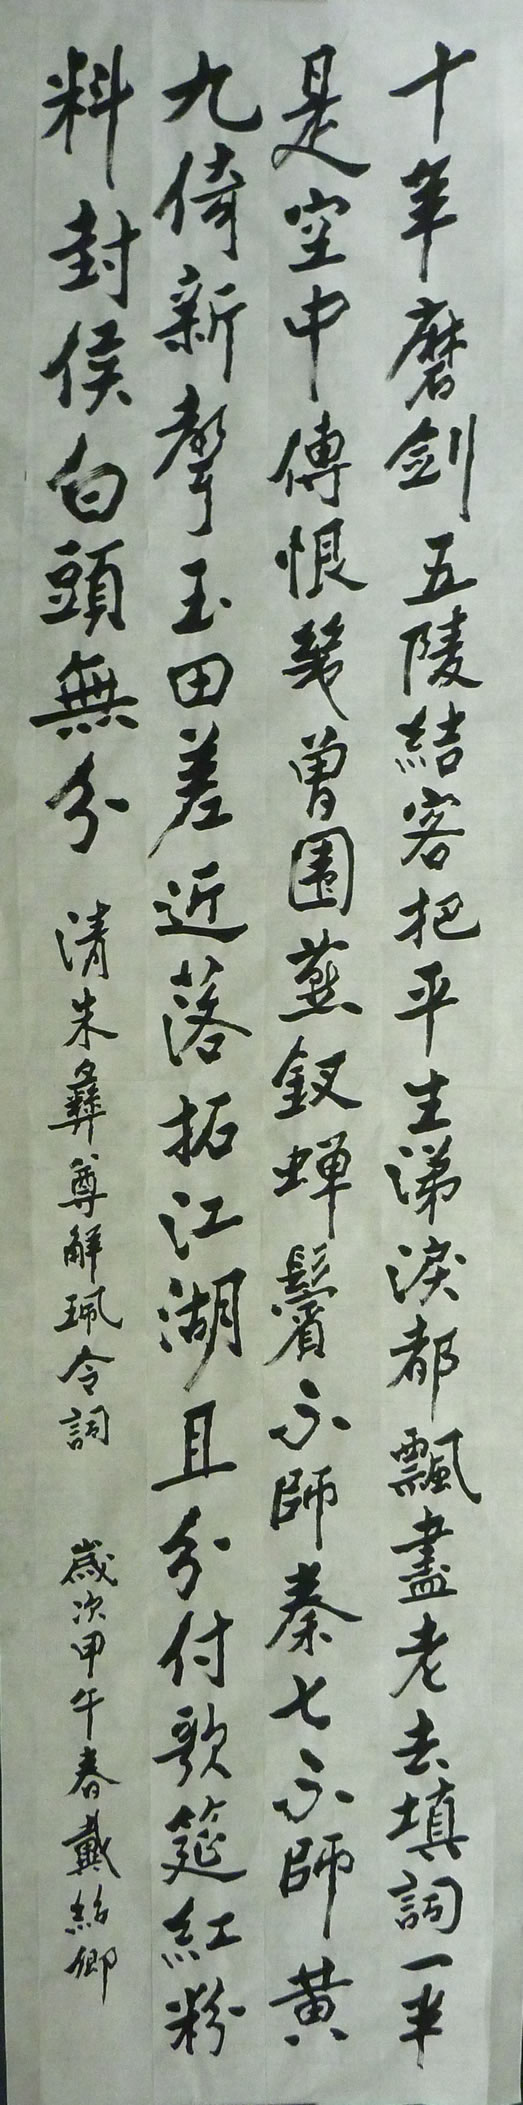 十年磨劍五陵結客把平生涕淚都飄盡老去填詞一半
是空中傳恨幾曾圍燕釵蟬鬢不師秦七不師黃
九倚新聲玉田差近落拓江湖且分付歌筵紅粉
料封侯白頭無分 清朱彝尊解珮令詞 歲次甲午春戴紹卿